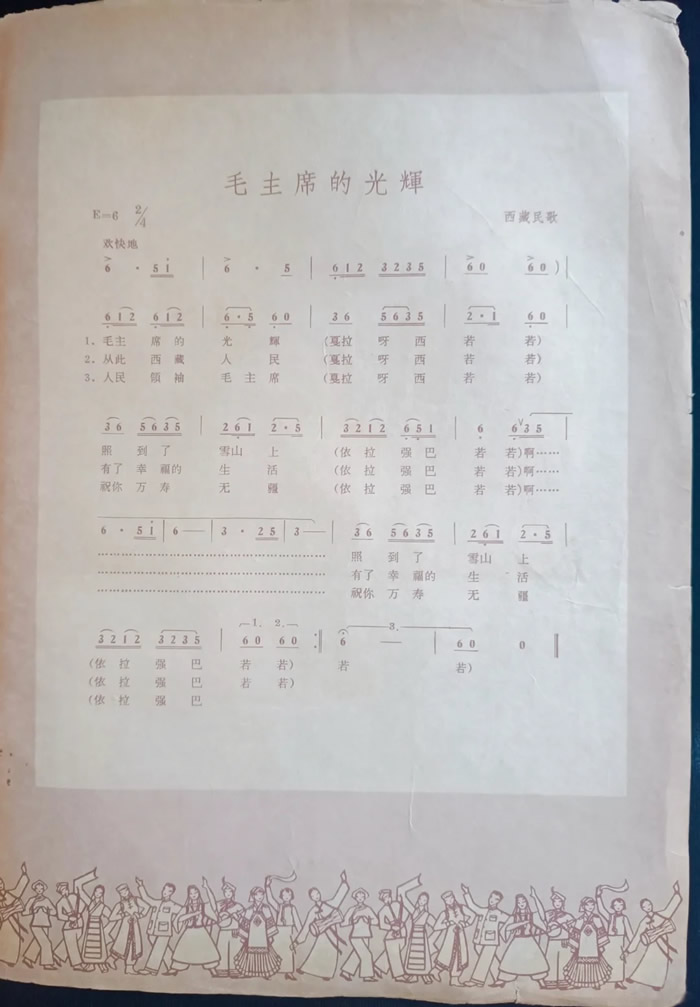 毛主席的光輝
E=6 2/4 西藏民歌
欢快地
6 · 5 1 | 6 · 5 | 6 1 2 3 2 3 5 | 6 0 6 0 ) |
6 1 2 6 1 2 | 6 · 5 6 0 | 3 6 5 6 3 5 | 2 · 1 6 0 |
1、毛主 席的 光 輝 (戛拉 呀西 若 若)
2、从此 西藏 人 民 (戛拉 呀西 若 若)
3、人民 領袖 毛主席 (戛拉 呀西 若 若)
3 6 5 6 3 5 | 2 6 1 2 · 5 | 3 2 1 2 6 5 1 | 6 6 3 5
照 到了 雪山 上 (依拉 强巴 若 若)啊……
有了 幸福的 生 活 (依拉 强巴 若 若)啊……
祝你 万寿 无 疆 (依拉 强巴 若 若)啊……
6 · 5 1 | 6 — | 3 · 2 5 | 3 — | 3 6 5 6 3 5 | 2 6 1 2 · 5 |
照 到了 雪山 上
有了 幸福的 生 活
祝你 万寿 无 疆
1. 2. 3.
3 2 1 2 3 2 3 5 | 6 0 6 0 :‖ 6 — | 6 0 0 ‖
(依拉 强巴 若 若) 若 若)
(依拉 强巴 若 若)
(依拉 强巴